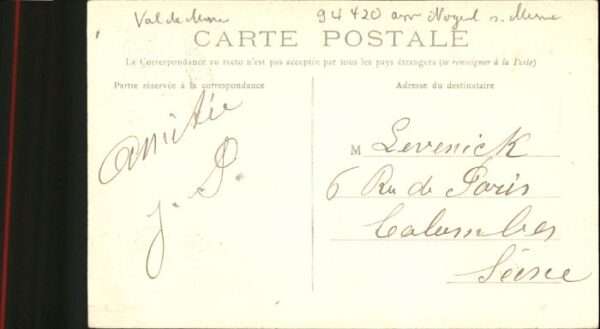 Val de Marne 94 420 arr Nogent s. Marne
CARTE POSTALE
La Correspondance au recto n'est pas acceptée par tous les pays étrangers (se renseigner à la Poste)
Partie réservée à la correspondance
Adresse du destinataire
Amitiée
J. P.
M Levenick
6 Rue de Paris
Colombes
Seine